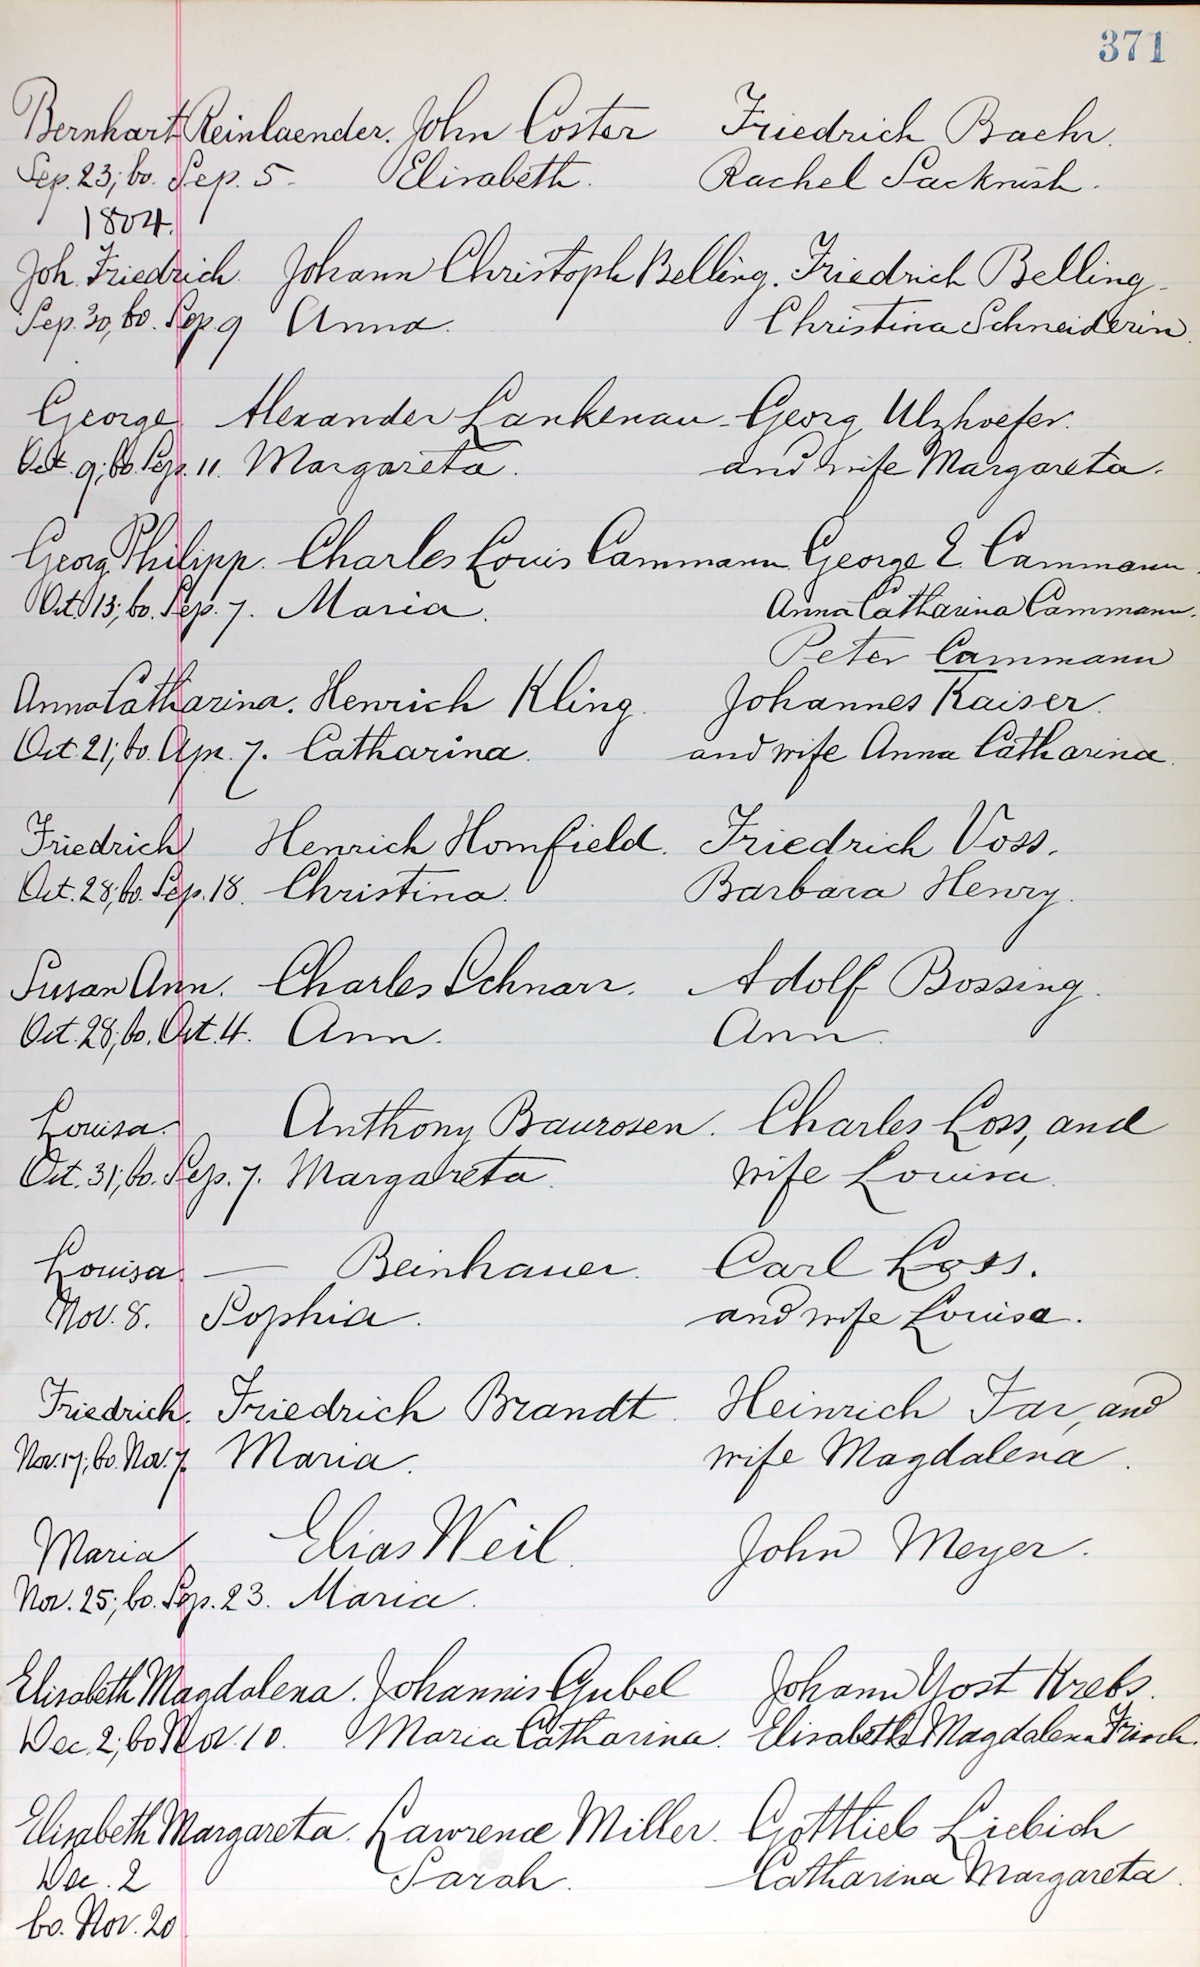 371
Bernhart Reinlaender. John Coster Friedrich Baehr.
Sep. 23; bo. Sep. 5. Elisabeth. Rachel
1804.
Joh. Friedrich Johann Christoph Belling. Friedrich Belling
Sep. 30, bo. Sep. 9 Anna. Christina Schneiderin.
George Alexander Lankenau Georg Ulzhoefer.
Oct. 9; bo. Sep. 11. Margareta. and wife Margareta.
Georg Philipp. Charles Louis Cammann George E. Cammann.
Oct. 13; bo. Sep. 7. Maria. Anna Catharina Cammann.
Peter Cammann
Anna Catharina. Henrich Kling. Johannes Kaiser.
Oct. 21; bo. Apr. 7. Catharina. and wife Anna Catharina.
Friedrich Henrich Homfield. Friedrich Voss.
Oct. 28; bo. Sep. 18. Christina. Barbara Henry.
Susan Ann. Charles Schnarr. Adolf Bossing.
Oct. 28; bo. Oct. 4. Ann. Ann.
Louisa. Anthony Baurosen. Charles Loss, and
Oct. 31; bo. Sep. 7. Margareta. wife Louisa.
Louisa — Beinhauer. Carl Loss.
Nov. 8. Sophia. and wife Louisa.
Friedrich. Friedrich Brandt. Heinrich Far, and
Nov. 17; bo. Nov. 7. Maria. wife Magdalena.
Maria Elias Weil. John Meyer.
Nov. 25; bo. Sep. 23. Maria.
Elisabeth Magdalena. Johannis Gubel Johann Yost Krebs.
Dec. 2; bo Nov. 10. Maria Catharina. Elisabeth Magdalena
Elisabeth Margareta. Lawrence Miller. Gottlieb Liebich
Dec. 2 Sarah. Catharina Margareta.
bo. Nov. 20